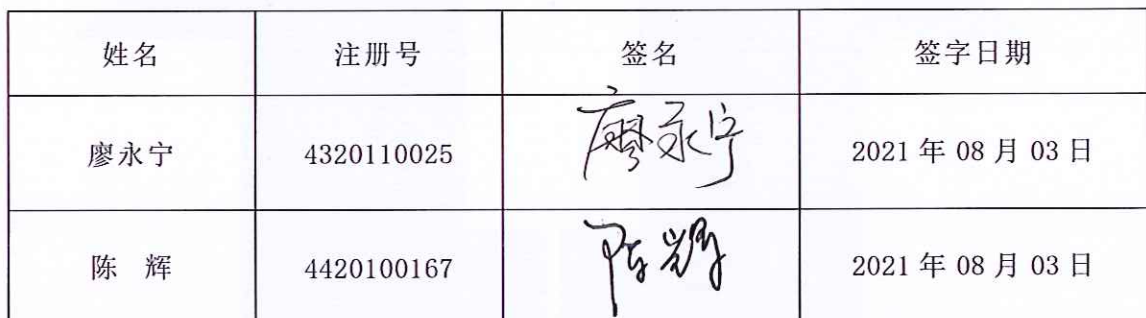 姓名 注册号 签名 签字日期
廖永宁 4320110025 廖永宁 2021 年 08 月 03 日
陈 辉 4420100167 陈辉 2021 年 08 月 03 日